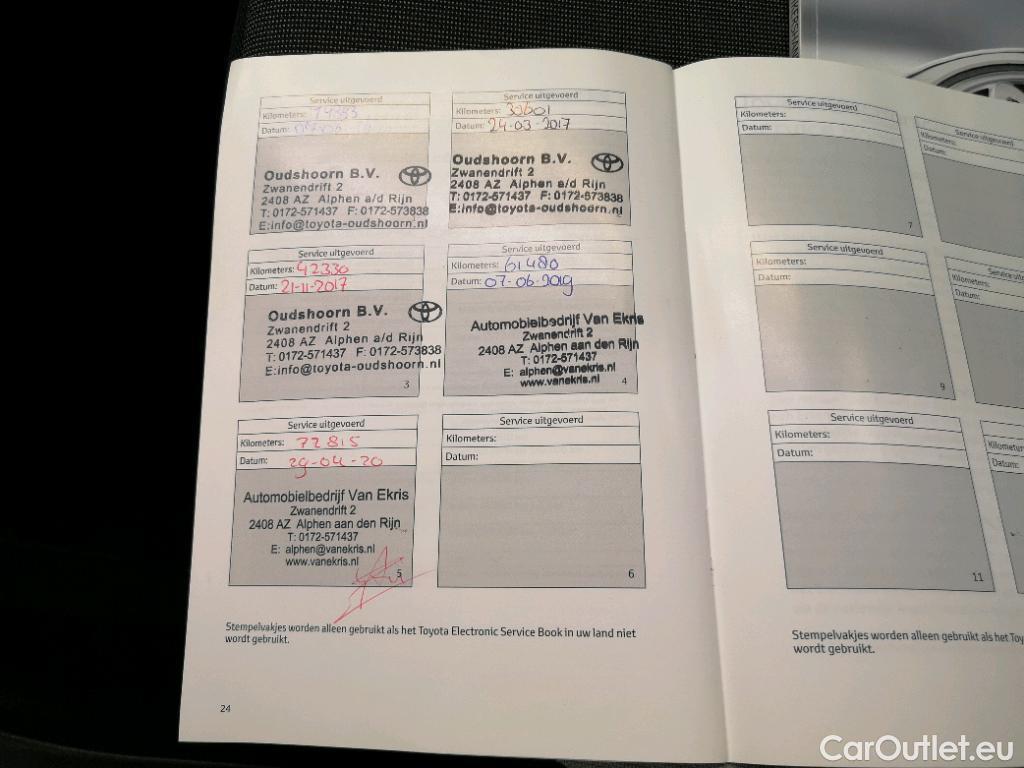 Service uitgevoerd
Kilometers:
Datum:
Oudshoorn B.V.
Zwanendrift 2
2408 AZ Alphen a/d Rijn
T: 0172-571437 F: 0172-573838
E:info@toyota-oudshoorn.nl
Service uitgevoerd
Kilometers:
Datum: 24-03-2017
Oudshoorn B.V.
Zwanendrift 2
2408 AZ Alphen a/d Rijn
T: 0172-571437 F: 0172-573838
E:info@toyota-oudshoorn.nl
Service uitgevoerd
Kilometers: 42330
Datum: 21-11-2017
Oudshoorn B.V.
Zwanendrift 2
2408 AZ Alphen a/d Rijn
T: 0172-571437 F: 0172-573838
E:info@toyota-oudshoorn.nl
3
Service uitgevoerd
Kilometers: 61480
Datum: 07-06-2019
Automobielbedrijf Van Ekris
Zwanendrift 2
2408 AZ Alphen aan den Rijn
T: 0172-571437
E: alphen@vanekris.nl
www.vanekris.nl
4
Service uitgevoerd
Kilometers: 72815
Datum: 29-04-20
Automobielbedrijf Van Ekris
Zwanendrift 2
2408 AZ Alphen aan den Rijn
T: 0172-571437
E: alphen@vanekris.nl
www.vanekris.nl
5
Service uitgevoerd
Kilometers:
Datum:
6
Stempelvakjes worden alleen gebruikt als het Toyota Electronic Service Book in uw land niet
wordt gebruikt.
24
Service uitgevoerd
Kilometers:
Datum:
7
Service uitgevoerd
Kilometers:
Datum:
Service uitgevoerd
Kilometers:
Datum:
9
Kilometers:
Datum:
Service uitgevoerd
Kilometers:
Datum:
11
Datum:
Stempelvakjes worden alleen gebruikt als het
wordt gebruikt.
CarOutlet.eu